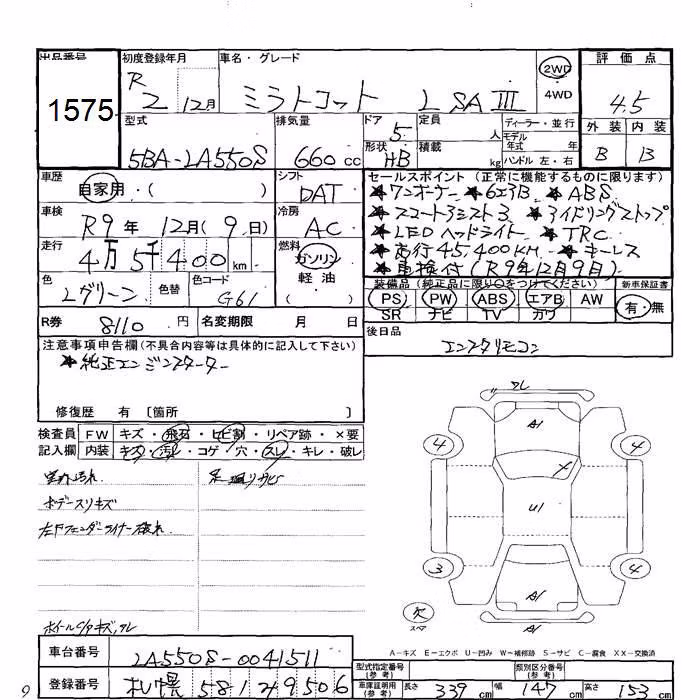 出品番号 1575
初度登録年月 R 2 12月
車名・グレード ミラトコット L SA III
2WD 4WD
評価点 4.5
型式 5BA-LA550S
排気量 660 cc
ドア 5
形状 HB
定員 人
積載 kg
ディーラー・並行
モデル年式 年式
ハンドル 左・右
外装 B
内装 B
車歴 自家用・( )
シフト DAT
車検 R9年 12月(9日)
冷房 AC
走行 4万5千400 km
燃料 ガソリン 軽油 ( )
色 Lグリーン
色替
色コード G61
R券 8110 円
名変期限 月 日
セールスポイント (正常に機能するものに限ります)
★ワンオーナー ★ ★ABS
★スマートアシスト3 ★アイドリングストップ
★LEDヘッドライト ★TRC
★走行45,400KM ★キーレス
★車検付(R9年12月9日)
装備品(純正品に限り○をつけてください)
PS PW ABS エアB AW
SR ナビ TV カワ
新車保証書 有・無
後日品 エンスタリモコン
注意事項申告欄(不具合内容等は具体的に記入して下さい)
★純正エンジンスターター
修復歴 有 〔箇所 〕
検査員記入欄
FW キズ・飛石・ヒビ割・リペア跡・×要
内装 キズ・汚れ・コゲ・穴・スレ・キレ・破レ
室内汚れ
ボデースリキズ
左Fフェンダーライナー破れ
ホイールC/Pキズ,スレ
スレ
A1
4 4
U1
3 4
A1
欠 スペア
A1
A-キズ E-エクボ U-凹み W-補修跡 S-サビ C-腐食 XX-交換済
車台番号 LA550S-0041511
登録番号 札幌 581 そ 9506
型式指定番号(参考)
類別区分番号(参考)
車庫証明用(参考) 長さ 339 cm 幅 147 cm 高さ 153 cm
9